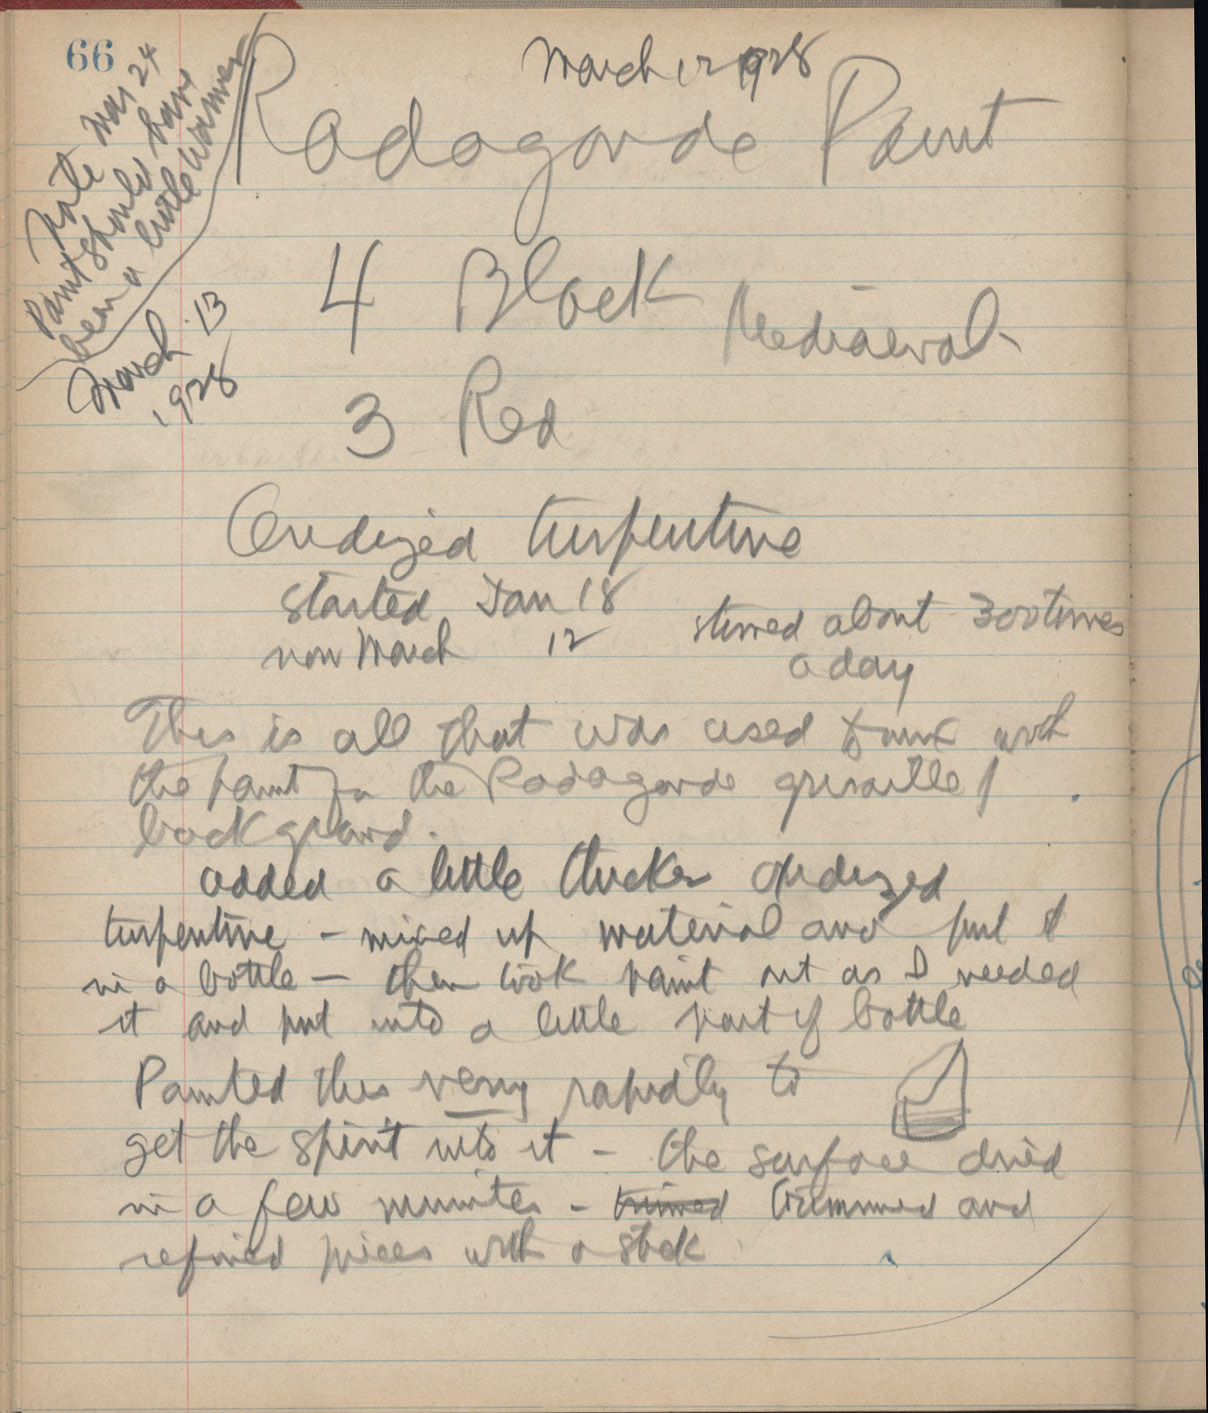 66
March 12 1928
Note Mar 24
Paint should have
been a little warmer
March 13
1928
Radagonde Paint
4 Black
Mediaeval
3 Red
Oxidized turpentine
started Jan 18
now March 12
stirred about 300 times
a day
This is all that was used to mix with
the paint for the Radagonde grisaille
background.
added a little thicker oxidized
turpentine - mixed up material and put it
in a bottle - then took paint out as I needed
it and put into a little part of bottle
Painted this very rapidly to
get the spirit into it - the surface dried
in a few minutes - trimmed trimmed and
refined pieces with a stick